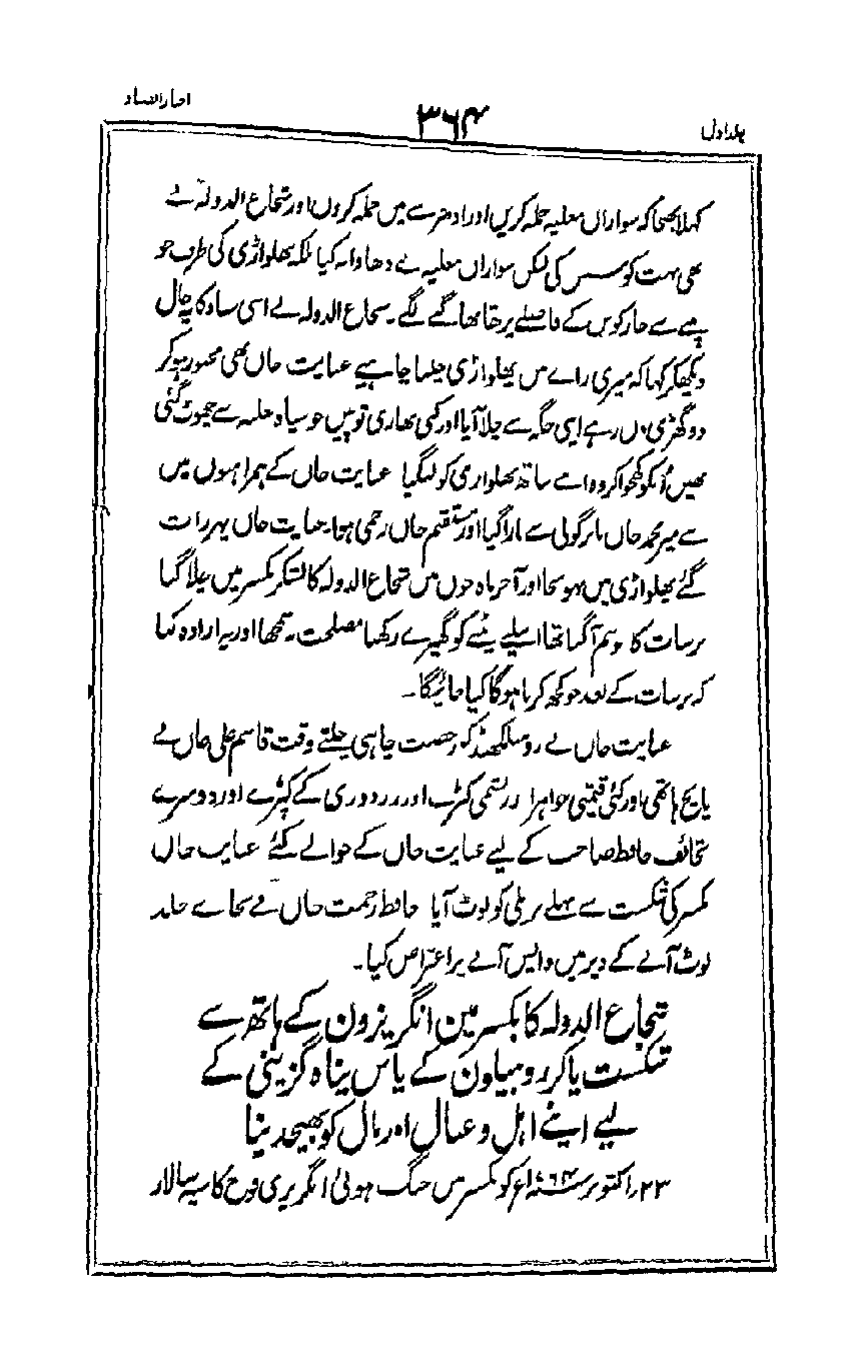 اخبار الصنادید
۳۶۴
جلد اول
کہلا بھیجا کہ سواراں مغلیہ حملہ کریں اور ادھر سے میں حملہ کروں اور شجاع الدولہ نے
بھی بہت کوشش کی لیکن سواراں مغلیہ نے دھاوا نہ کیا بلکہ پھلواڑی کی طرف جو
پٹنے سے چار کوس کے فاصلے پر تھا بھاگنے لگے۔ شجاع الدولہ نے اسی سپاہ کا یہ حال
دیکھکر کہا کہ میری رائے میں پھلواڑی چلنا چاہیے عنایت خاں بھی مجبور ہوکر
دو گھڑی دن رہے اپنی جگہ سے چلا آیا اور کئی بھاری توپیں جو سپاہ مغلیہ سے چھوٹ گئی
تھیں اُنکو کھچوا کر وہ اپنے ساتھ پھلواری کو لیگیا عنایت خاں کے ہمراہیوں میں
سے میر محمد خاں گولی سے مارا گیا اور مستقیم خاں زخمی ہوا عنایت خاں پہر رات
گئے پھلواڑی میں پہونچا اور آخر ماہ جون میں شجاع الدولہ کا لشکر بکسر میں چلا گیا
برسات کا موسم آگیا تھا اسلیے پٹنے کو گھیرے رکھنا مصلحت نہ سمجھا اور یہ ارادہ کیا
کہ برسات کے بعد جو کچھ کرنا ہوگا کیا جائیگا۔
عنایت خاں نے روہیلکھنڈ کو رخصت چاہی چلتے وقت قاسم علی خاں نے
پانچ ہاتھی اور کئی قیمتی جواہر اور ریشمی کپڑے اور زردوزی کے کپڑے اور دوسرے
تحائف حافظ صاحب کے لیے عنایت خاں کے حوالے کئے عنایت خاں
بکسر کی شکست سے پہلے بریلی کو لوٹ آیا حافظ رحمت خاں نے بجائے جلد
لوٹ آنے کے دیر میں واپس آنے پر اعتراض کیا۔
شجاع الدولہ کا بکسر مین انگریزون کے ہاتھ سے
شکست پاکر روہیلون کے پاس پناہ گزینی کے
لیے اپنے اہل و عیال اور مال کو بھیجدینا
۲۳؍ اکتوبر ۱۷۶۴ء کو بکسر میں جنگ ہوئی انگریزی فوج کا سپہ سالار